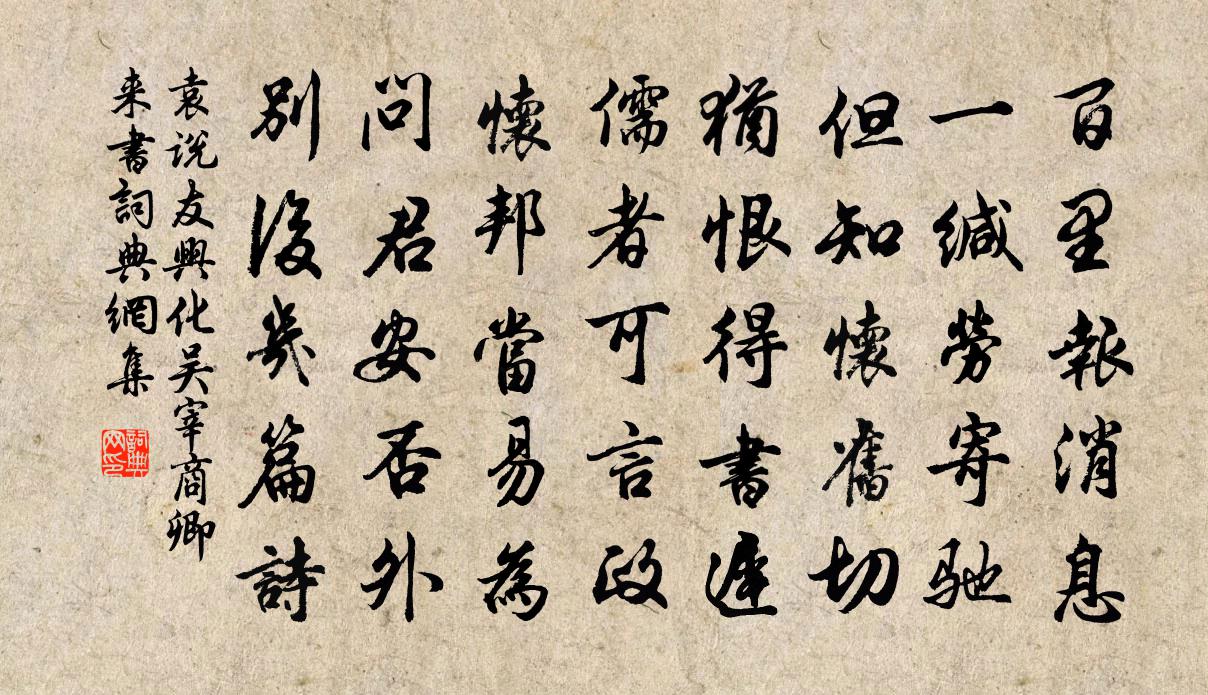 百里報消息
一緘勞寄馳
但知懷舊切
猶恨得書遲
儒者可言政
懷邦當易為
問君安否外
別後幾篇詩
袁說友興化吳宰商卿
来書詞典網集
詞典
网印